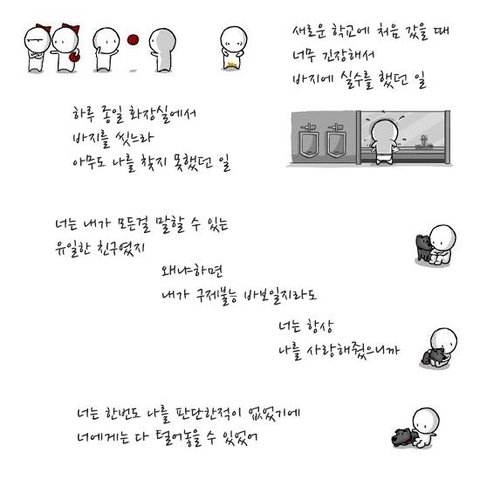 새로운 학교에 처음 갔을 때
너무 긴장해서
바지에 실수를 했던 일
하루 종일 화장실에서
바지를 씻느라
아무도 나를 찾지 못했던 일
너는 내가 모든걸 말할 수 있는
유일한 친구였지
왜냐하면
내가 구제불능 바보일지라도
너는 항상
나를 사랑해줬으니까
너는 한번도 나를 판단한적이 없었기에
너에게는 다 털어놓을 수 있었어